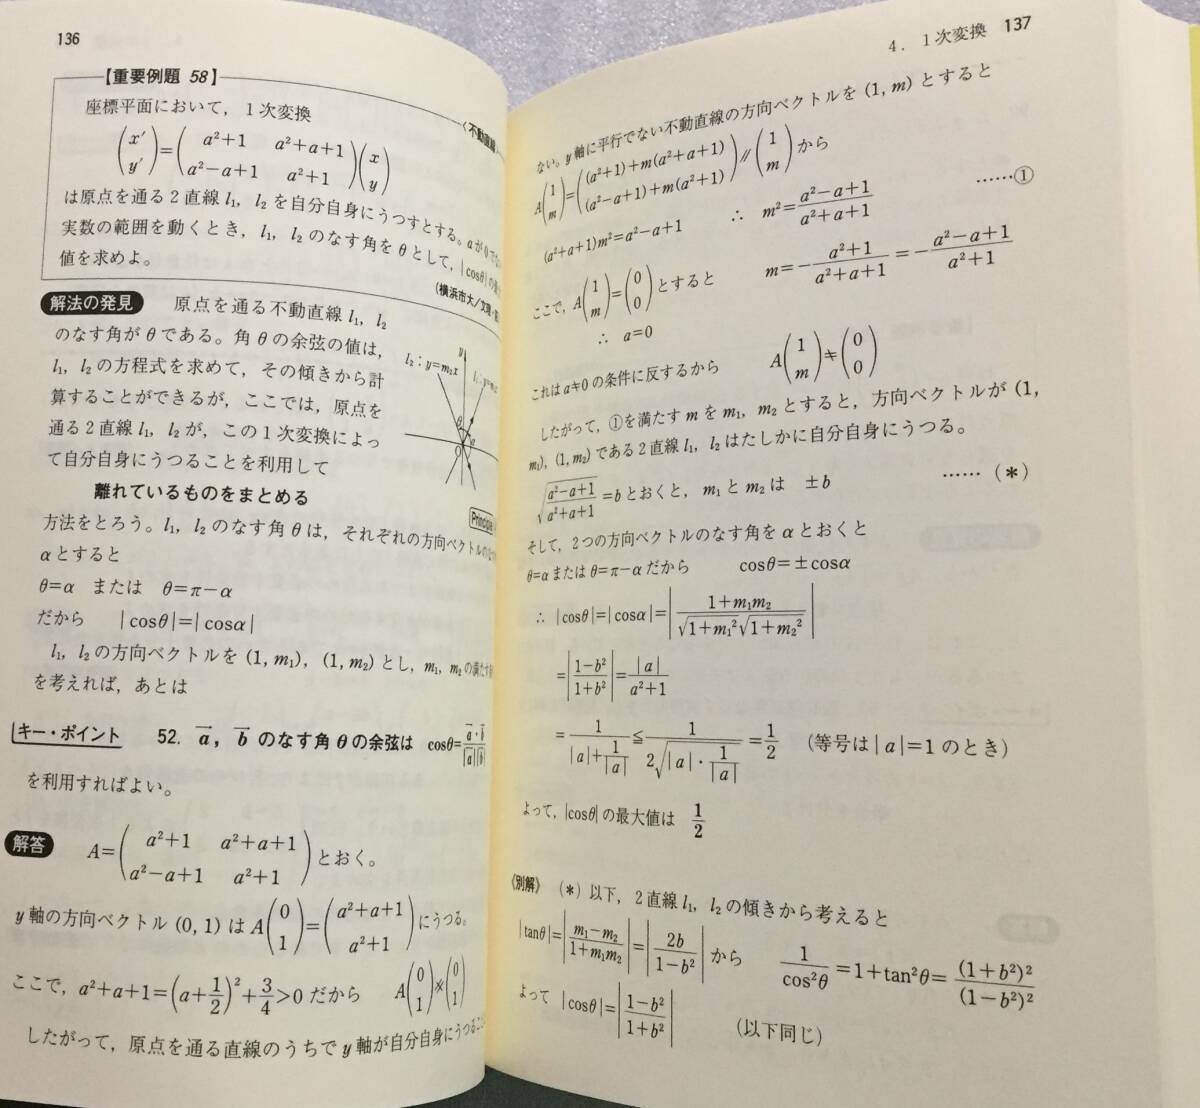 136
【重要例題 58】
〈不動直線
座標平面において，1次変換
(x' y')=(a²+1 a²+a+1 a²-a+1 a²+1)(x y)
は原点を通る2直線l₁, l₂を自分自身にうつすとする。aが0でな
実数の範囲を動くとき，l₁, l₂のなす角をθとして，|cosθ|の
値を求めよ。
(横浜市大／文理・
解法の発見 原点を通る不動直線l₁, l₂
のなす角がθである。角θの余弦の値は，
l₁, l₂の方程式を求めて，その傾きから計
算することができるが，ここでは，原点を
通る2直線l₁, l₂が，この1次変換によっ
て自分自身にうつることを利用して
y
l₂：y=m₂x
θ
O
離れているものをまとめる
Principle
方法をとろう。l₁, l₂のなす角θは，それぞれの方向ベクトルのなす
αとすると
θ=α または θ=π-α
だから |cosθ|=|cosα|
l₁, l₂の方向ベクトルを(1, m₁), (1, m₂)とし，m₁, m₂の満たす
を考えれば，あとは
キー・ポイント 52. a→, b→のなす角θの余弦は cosθ=a→・b→/|a→||b→|
を利用すればよい。
解答 A=(a²+1 a²+a+1 a²-a+1 a²+1)とおく。
y軸の方向ベクトル(0, 1)はA(0 1)=(a²+a+1 a²+1)にうつる。
ここで，a²+a+1=(a+1/2)²+3/4>0だから A(0 1)∦(0 1)
したがって，原点を通る直線のうちでy軸が自分自身にうつること
4. 1次変換 137
ない。y軸に平行でない不動直線の方向ベクトルを(1, m)とすると
A(1 m)=((a²+1)+m(a²+a+1) (a²-a+1)+m(a²+1))∥(1 m)から
(a²+a+1)m²=a²-a+1 ∴ m²=a²-a+1/a²+a+1 ……①
ここで，A(1 m)=(0 0)とすると m=-a²+1/a²+a+1=-a²-a+1/a²+1
∴ a=0
これはa≠0の条件に反するから A(1 m)≠(0 0)
したがって，①を満たすmをm₁, m₂とすると，方向ベクトルが(1,
m₁), (1, m₂)である2直線l₁, l₂はたしかに自分自身にうつる。
√(a²-a+1/a²+a+1)=bとおくと，m₁とm₂は ±b ……(＊)
そして，2つの方向ベクトルのなす角をαとおくと
θ=αまたはθ=π-αだから cosθ=±cosα
∴ |cosθ|=|cosα|=|1+m₁m₂/√(1+m₁²)√(1+m₂²)|
=|1-b²/1+b²|=|a|/a²+1
=1/(|a|+1/|a|)≦1/(2√(|a|・1/|a|))=1/2 (等号は|a|=1のとき)
よって，|cosθ|の最大値は 1/2
《別解》 (＊)以下，2直線l₁, l₂の傾きから考えると
|tanθ|=|m₁-m₂/1+m₁m₂|=|2b/1-b²|から 1/cos²θ=1+tan²θ=(1+b²)²/(1-b²)²
よって |cosθ|=|1-b²/1+b²| (以下同じ)